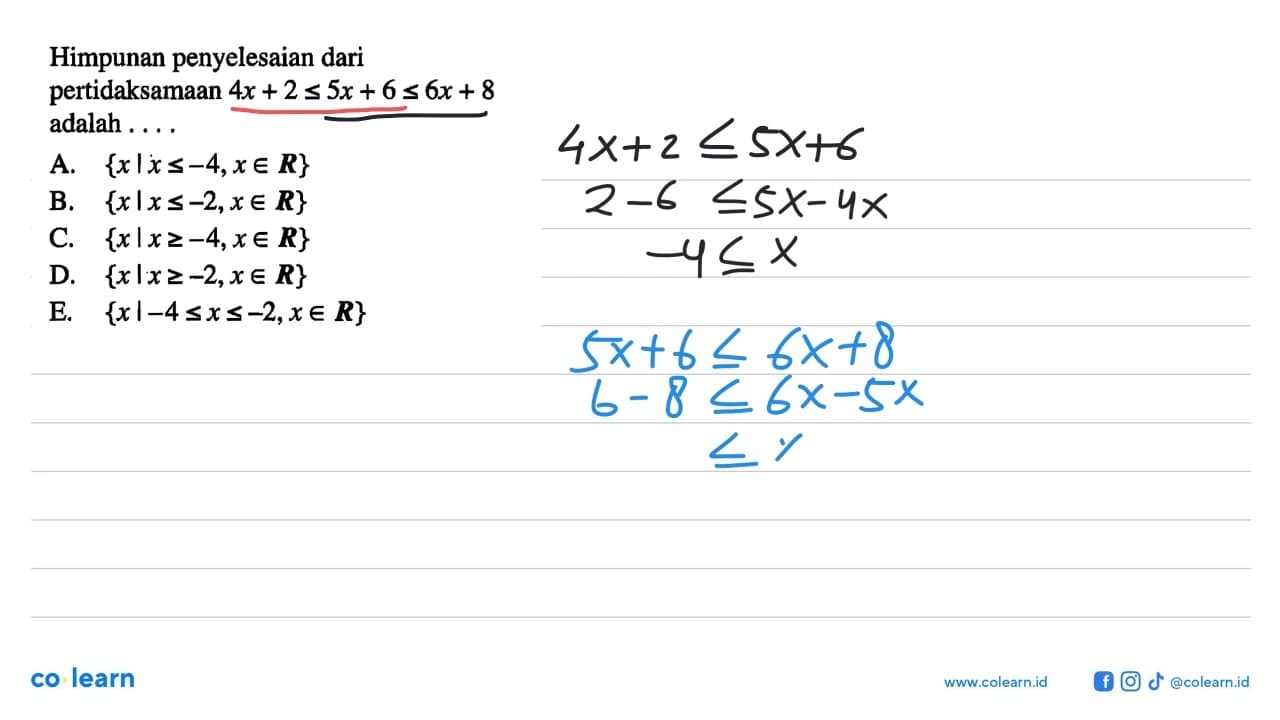 Himpunan penyelesaian dari
pertidaksamaan 4x + 2 ≤ 5x + 6 ≤ 6x + 8
adalah . . . .
A. {x | x ≤ –4, x ∈ R}
B. {x | x ≤ –2, x ∈ R}
C. {x | x ≥ –4, x ∈ R}
D. {x | x ≥ –2, x ∈ R}
E. {x | –4 ≤ x ≤ –2, x ∈ R}
4x+2 ≤ 5x+6
2-6 ≤ 5x-4x
-4 ≤ x
5x+6 ≤ 6x+8
6-8 ≤ 6x-5x
≤ x
co learn
www.colearn.id
@colearn.id